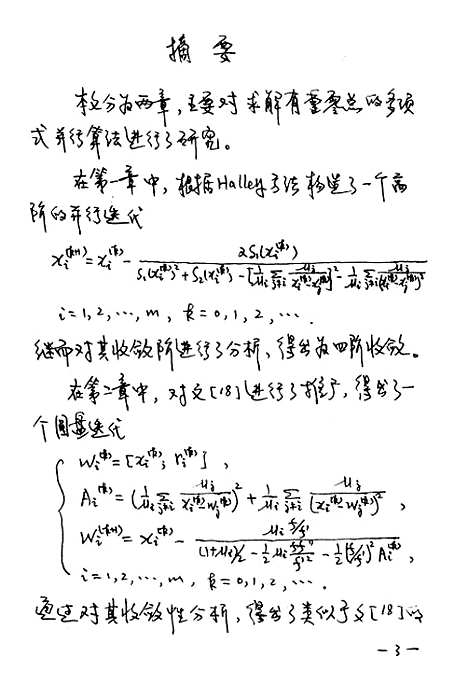 摘 要
本文分为两章，主要对求解有重零点的多项
式并行算法进行了研究。
在第一章中，根据Halley方法构造了一个高
阶的并行迭代
x_i^{(k+1)} = x_i^{(k)} - \frac{2S_1(x_i^{(k)})}{S_1(x_i^{(k)})^2 + S_2(x_i^{(k)}) - [\frac{1}{μ_i}\sum_{j≠i}\frac{μ_j}{x_i^{(k)}-x_j^{(k)}}]^2 - \frac{1}{μ_i}\sum_{j≠i}\frac{μ_j}{(x_i^{(k)}-x_j^{(k)})^2}}
i=1,2,…,m, k=0,1,2,….
继而对其收敛阶进行了分析，得出为四阶收敛。
在第二章中，对文[18]进行了推广，得出了一
个圆盘迭代
W_i^{(k)} = [x_i^{(k)}; r_i^{(k)}],
A_i^{(k)} = (\frac{1}{μ_i}\sum_{j≠i}\frac{μ_j}{x_i^{(k)}-W_j^{(k)}})^2 + \frac{1}{μ_i}\sum_{j≠i}\frac{μ_j}{(x_i^{(k)}-W_j^{(k)})^2},
W_i^{(k+1)} = x_i^{(k)} - \frac{μ_i f/f'}{(1+μ_i)/2 - \frac{1}{2}μ_i\frac{ff''}{f'^2} - \frac{1}{2}(f/f')^2 A_i^{(k)}},
i=1,2,…,m, k=0,1,2,….
通过对其收敛性分析，得出了类似于文[18]的
—3—